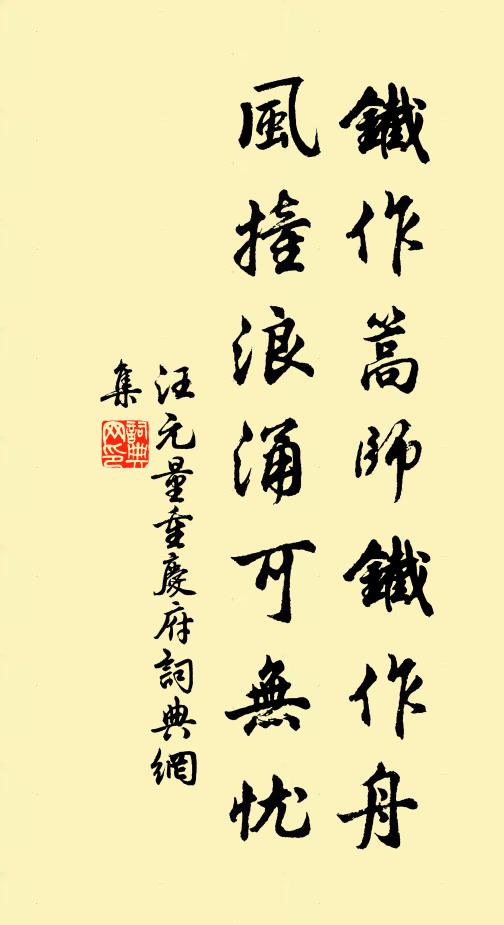 鐵作篙師鐵作舟
風撞浪涌可無忧
汪元量重慶府詞典網
集
詞典
网印